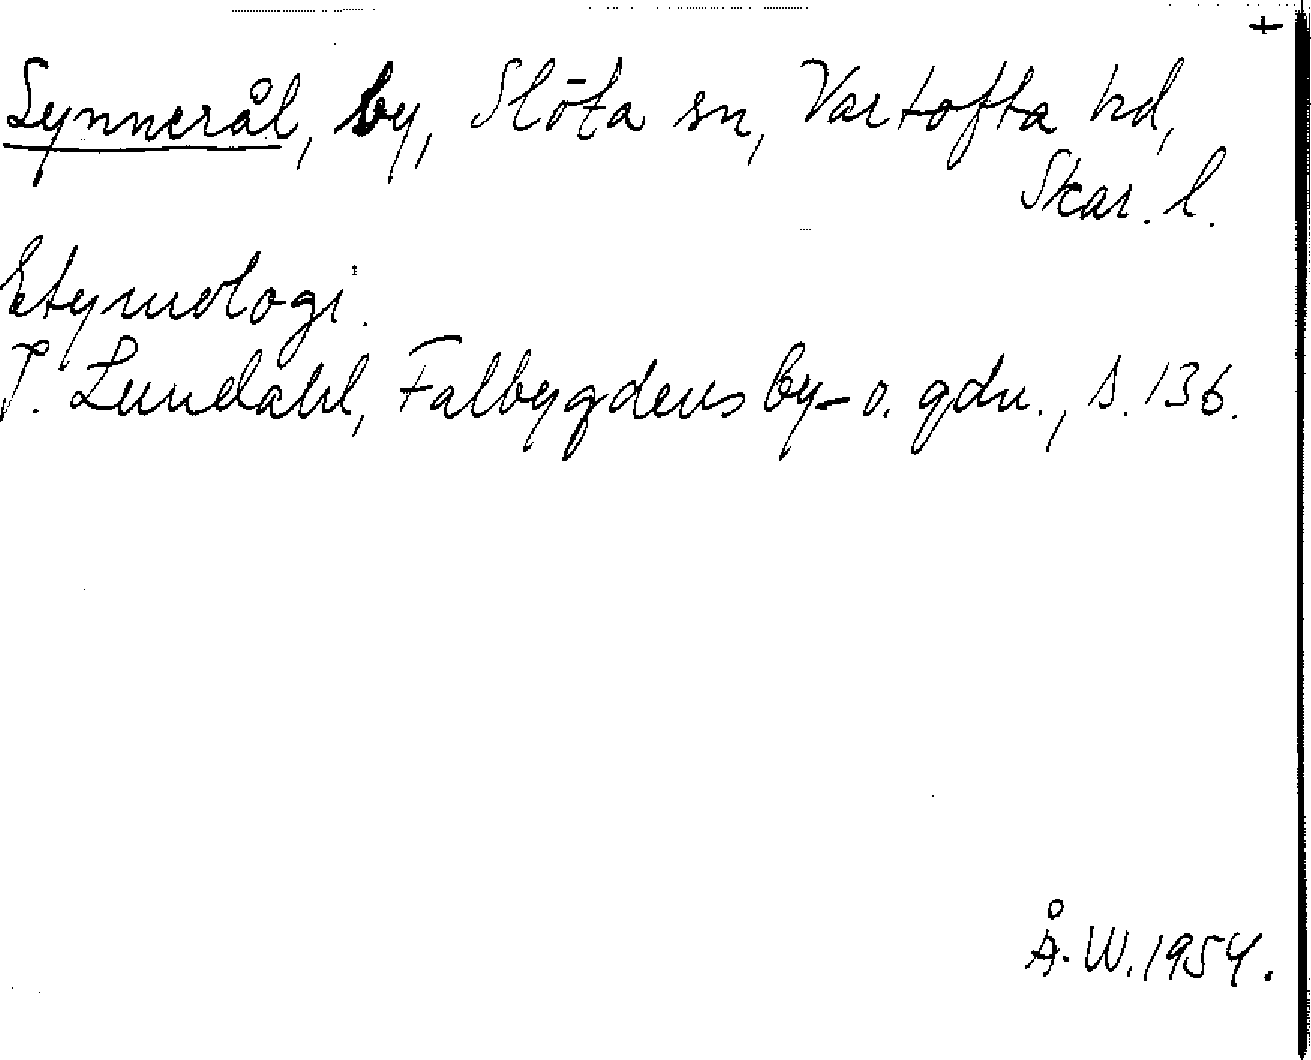 +
Synnerål, by, Slöta sn, Vartofta hd,
Skar. l.
Etymologi.
I. Lundahl, Falbygdens by- o. gdn., s. 136.
Å. W. 1954.